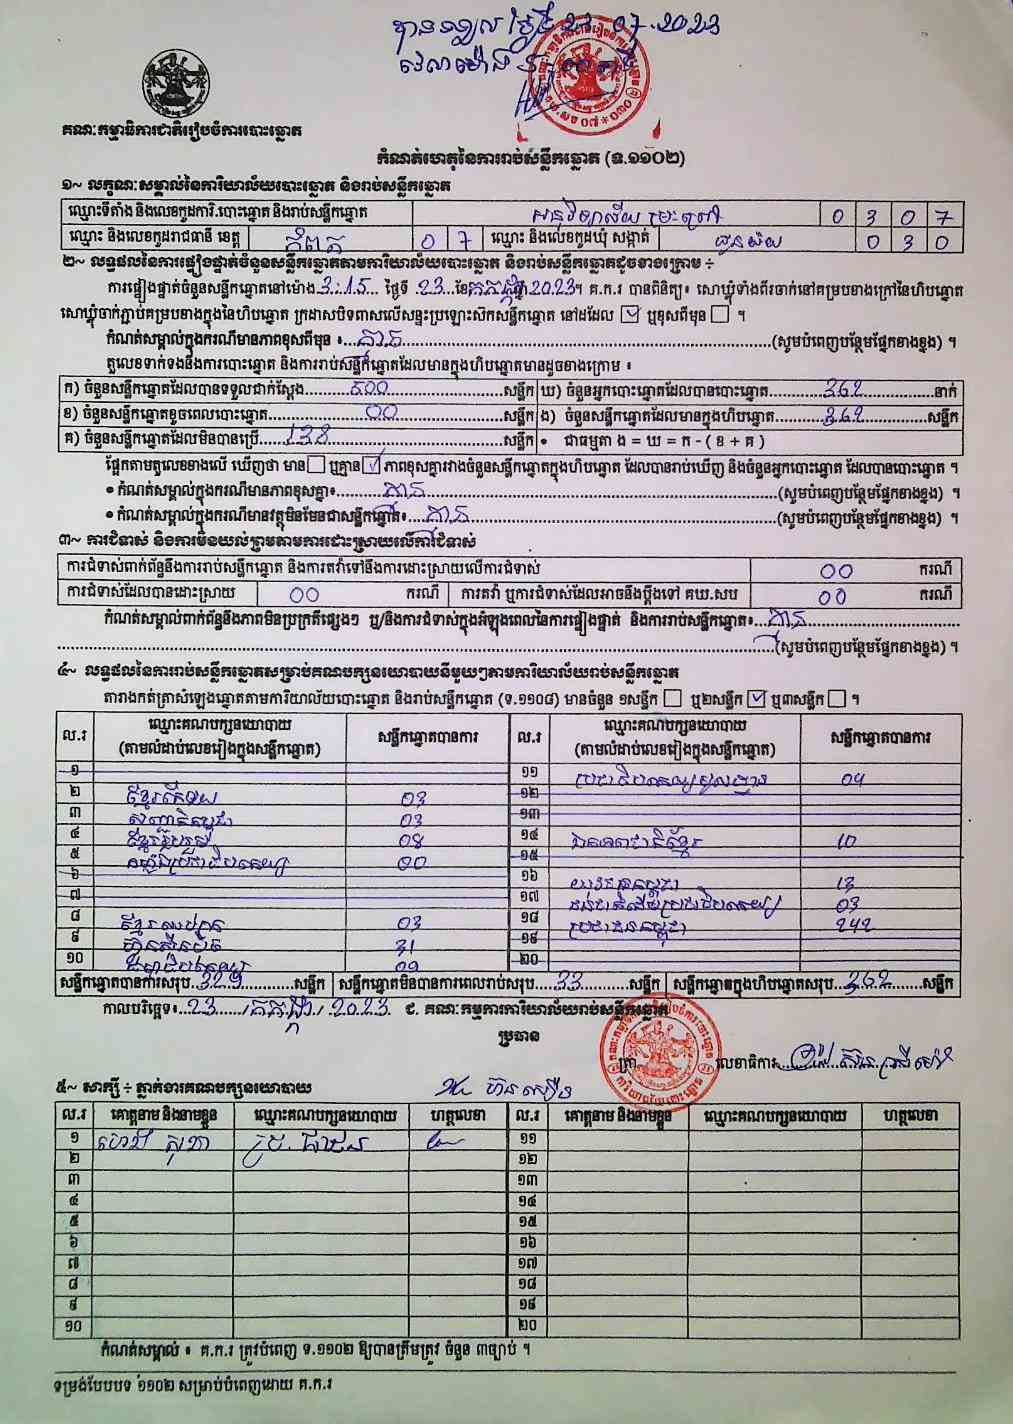 បានទទួល ថ្ងៃទី 23.07.2023
វេលាម៉ោង
គណៈកម្មាធិការជាតិរៀបចំការបោះឆ្នោត
កំណត់ហេតុនៃការរាប់សន្លឹកឆ្នោត (ទ.១១០២)
១~ លក្ខណៈសម្គាល់នៃការិយាល័យបោះឆ្នោត និងរាប់សន្លឹកឆ្នោត
ឈ្មោះទីតាំង និងលេខកូដការិ.បោះឆ្នោត និងរាប់សន្លឹកឆ្នោត អនុវិទ្យាល័យ 0 3 0 7
ឈ្មោះ និងលេខកូដរាជធានី ខេត្ត កំពត 0 7 ឈ្មោះ និងលេខកូដឃុំ សង្កាត់ 0 3 0
២~ លទ្ធផលនៃការផ្ទៀងផ្ទាត់ចំនួនសន្លឹកឆ្នោតតាមការិយាល័យបោះឆ្នោត និងរាប់សន្លឹកឆ្នោតដូចខាងក្រោម ÷
ការផ្ទៀងផ្ទាត់ចំនួនសន្លឹកឆ្នោតនៅម៉ោង 3:15 ថ្ងៃទី 23 ខែ កក្កដា ឆ្នាំ 2023។ គ.ក.រ បានពិនិត្យ៖ សោឃ្លុំទាំងពីរចាក់នៅគម្របខាងក្រៅនៃហិបឆ្នោត
សោឃ្លុំចាក់ភ្ជាប់គម្របខាងក្នុងនៃហិបឆ្នោត ក្រដាសបិទពាសលើសន្ទះប្រឡោះសិកសន្លឹកឆ្នោត នៅដដែល ☑ ឬខុសពីមុន ☐ ។
កំណត់សម្គាល់ក្នុងករណីមានភាពខុសពីមុន ៖ គ្មាន (សូមបំពេញបន្ថែមផ្នែកខាងខ្នង) ។
តួលេខទាក់ទងនឹងការបោះឆ្នោត និងការរាប់សន្លឹកឆ្នោតដែលមានក្នុងហិបឆ្នោតមានដូចខាងក្រោម ៖
ក) ចំនួនសន្លឹកឆ្នោតដែលបានទទួលជាក់ស្តែង 500 សន្លឹក ឃ) ចំនួនអ្នកបោះឆ្នោតដែលបានបោះឆ្នោត 362 នាក់
ខ) ចំនួនសន្លឹកឆ្នោតខូចពេលបោះឆ្នោត 00 សន្លឹក ង) ចំនួនសន្លឹកឆ្នោតដែលមានក្នុងហិបឆ្នោត 362 សន្លឹក
គ) ចំនួនសន្លឹកឆ្នោតដែលមិនបានប្រើ 138 សន្លឹក • ជាធម្មតា ង = ឃ = ក - ( ខ + គ )
ផ្អែកតាមតួលេខខាងលើ ឃើញថា មាន ☐ ឬគ្មាន ☑ ភាពខុសគ្នារវាងចំនួនសន្លឹកឆ្នោតក្នុងហិបឆ្នោត ដែលបានរាប់ឃើញ និងចំនួនអ្នកបោះឆ្នោត ដែលបានបោះឆ្នោត ។
• កំណត់សម្គាល់ក្នុងករណីមានភាពខុសគ្នា៖ គ្មាន (សូមបំពេញបន្ថែមផ្នែកខាងខ្នង) ។
• កំណត់សម្គាល់ក្នុងករណីមានវត្ថុមិនមែនជាសន្លឹកឆ្នោត៖ គ្មាន (សូមបំពេញបន្ថែមផ្នែកខាងខ្នង) ។
៣~ ការជំទាស់ និងការមិនយល់ព្រមតាមការដោះស្រាយលើការជំទាស់
ការជំទាស់ពាក់ព័ន្ធនឹងការរាប់សន្លឹកឆ្នោត និងការតវ៉ាទៅនឹងការដោះស្រាយលើការជំទាស់ 00 ករណី
ការជំទាស់ដែលបានដោះស្រាយ 00 ករណី ការតវ៉ា ឬការជំទាស់ដែលអាចនឹងប្តឹងទៅ គឃ.សប 00 ករណី
កំណត់សម្គាល់ពាក់ព័ន្ធនឹងភាពមិនប្រក្រតីផ្សេងៗ ឬ/និងការជំទាស់ក្នុងអំឡុងពេលនៃការផ្ទៀងផ្ទាត់ និងការរាប់សន្លឹកឆ្នោត៖ គ្មាន
(សូមបំពេញបន្ថែមផ្នែកខាងខ្នង) ។
៤~ លទ្ធផលនៃការរាប់សន្លឹកឆ្នោតសម្រាប់គណបក្សនយោបាយនីមួយៗតាមការិយាល័យរាប់សន្លឹកឆ្នោត
តារាងកត់ត្រាសំឡេងឆ្នោតតាមការិយាល័យបោះឆ្នោត និងរាប់សន្លឹកឆ្នោត (ទ.១១០៨) មានចំនួន ១សន្លឹក ☐ ឬ២សន្លឹក ☑ ឬ៣សន្លឹក ☐ ។
ល.រ ឈ្មោះគណបក្សនយោបាយ (តាមលំដាប់លេខរៀងក្នុងសន្លឹកឆ្នោត) សន្លឹកឆ្នោតបានការ ល.រ ឈ្មោះគណបក្សនយោបាយ (តាមលំដាប់លេខរៀងក្នុងសន្លឹកឆ្នោត) សន្លឹកឆ្នោតបានការ
១ ១១ ប្រជាធិបតេយ្យមូលដ្ឋាន 04
២ ខ្មែរ 03 ១២
៣ កម្ពុជា 03 ១៣
៤ ខ្មែររួបរួម 04 ១៤ ឯកភាពជាតិខ្មែរ 10
៥ កម្លាំងប្រជាធិបតេយ្យ 00 ១៥
៦ ១៦ យុវជនកម្ពុជា 13
៧ ១៧ ប្រជាធិបតេយ្យ 03
៨ ខ្មែរ 03 ១៨ ប្រជាជនកម្ពុជា 242
៩ ហ៊្វុនស៊ិនប៉ិច 31 ១៩
១០ ២០
សន្លឹកឆ្នោតបានការសរុប 329 សន្លឹក សន្លឹកឆ្នោតមិនបានការពេលរាប់សរុប 33 សន្លឹក សន្លឹកឆ្នោតក្នុងហិបឆ្នោតសរុប 362 សន្លឹក
កាលបរិច្ឆេទ៖ 23 កក្កដា 2023 ជ. គណៈកម្មការការិយាល័យរាប់សន្លឹកឆ្នោត
ប្រធាន
ត្រា លេខាធិការ
៥~ សាក្សី ÷ ភ្នាក់ងារគណបក្សនយោបាយ
ល.រ គោត្តនាម និងនាមខ្លួន ឈ្មោះគណបក្សនយោបាយ ហត្ថលេខា ល.រ គោត្តនាម និងនាមខ្លួន ឈ្មោះគណបក្សនយោបាយ ហត្ថលេខា
១ ១១
២ ១២
៣ ១៣
៤ ១៤
៥ ១៥
៦ ១៦
៧ ១៧
៨ ១៨
៩ ១៩
១០ ២០
កំណត់សម្គាល់ ៖ គ.ក.រ ត្រូវបំពេញ ទ.១១០២ ឱ្យបានត្រឹមត្រូវ ចំនួន ៣ច្បាប់ ។
ទម្រង់បែបបទ ១១០២ សម្រាប់បំពេញដោយ គ.ក.រ